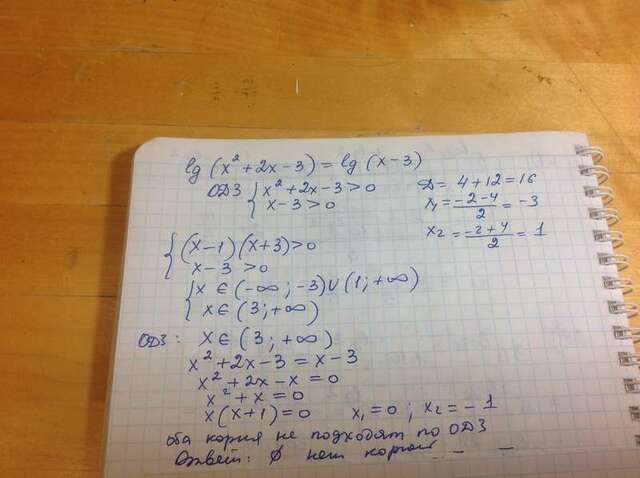 lg (x² + 2x - 3) = lg (x - 3)
ОДЗ { x² + 2x - 3 > 0
x - 3 > 0
D = 4 + 12 = 16
x₁ = (-2 - 4)/2 = -3
x₂ = (-2 + 4)/2 = 1
{ (x - 1)(x + 3) > 0
x - 3 > 0
{ x ∈ (-∞; -3) ∪ (1; +∞)
x ∈ (3; +∞)
ОДЗ: x ∈ (3; +∞)
x² + 2x - 3 = x - 3
x² + 2x - x = 0
x² + x = 0
x(x + 1) = 0 x₁ = 0; x₂ = -1
оба корня не подходят по ОДЗ
Ответ: ∅ нет корней